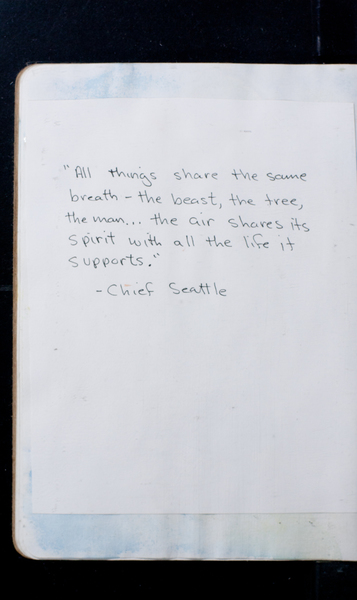 "All things share the same
breath - the beast, the tree,
the man... the air shares its
spirit with all the life it
supports."
- Chief Seattle